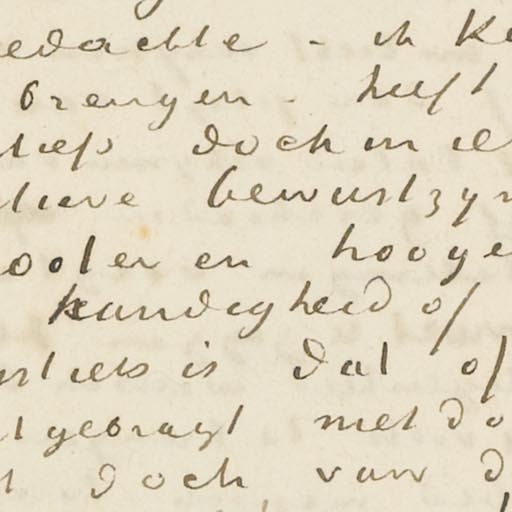 gedachte - ik Ke
brengen - heeft
iets doch in ie
tieve bewustzyn
ooter en hooge
handigheid of
nstiets is dat of
tgebragt met do
t doch van d